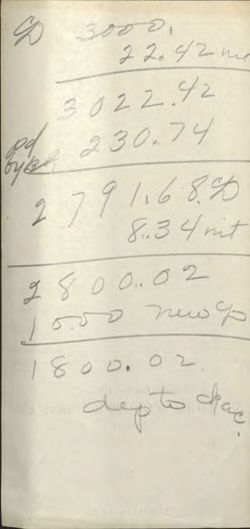 CD 3000.
22.42 int
3022.42
pd
by ck 230.74
2791.68 CD
8.34 int
2800.02
1000 new CD
1800.02
dep to ck ac.